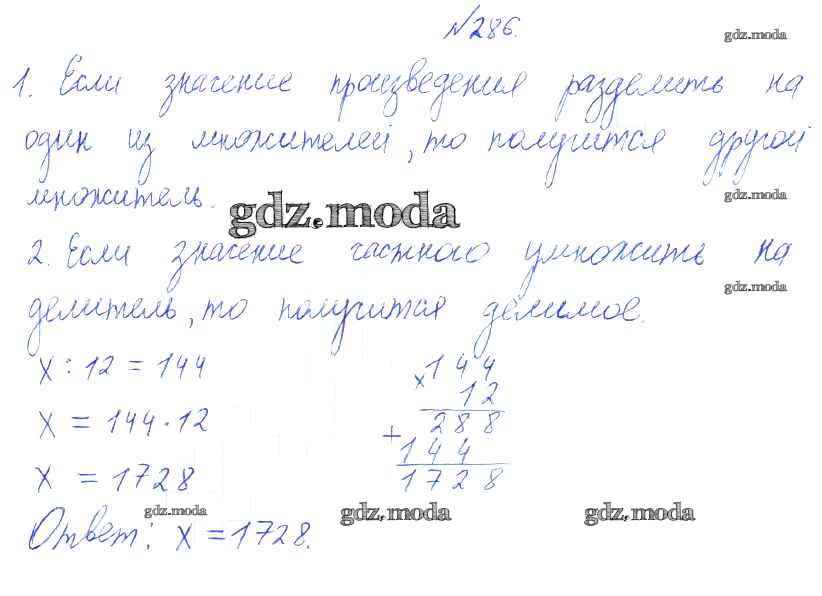 №286.
gdz.moda
1. Если значение произведения разделить на
один из множителей, то получится другой
множитель.
gdz.moda
gdz.moda
2. Если значение частного умножить на
gdz.moda
делитель, то получится делимое.
x : 12 = 144
x = 144 · 12
x = 1728
x 144
12
288
+
144
1728
gdz.moda
gdz.moda
gdz.moda
Ответ: x = 1728.